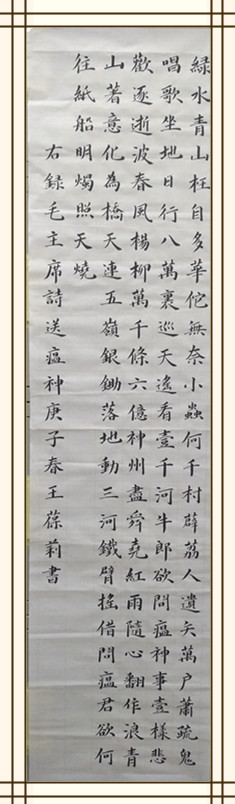 緑水青山枉自多華佗無奈小蟲何千村薜荔人遺矢萬户蕭疏鬼
唱歌坐地日行八萬裏巡天遙看壹千河牛郎欲問瘟神事壹樣悲
歡逐逝波春風楊柳萬千條六億神州盡舜堯紅雨隨心翻作浪青
山著意化為橋天連五嶺銀鋤落地動三河鐵臂搖借問瘟君欲何
往紙船明燭照天燒
右録毛主席詩送瘟神庚子春王葆莉書